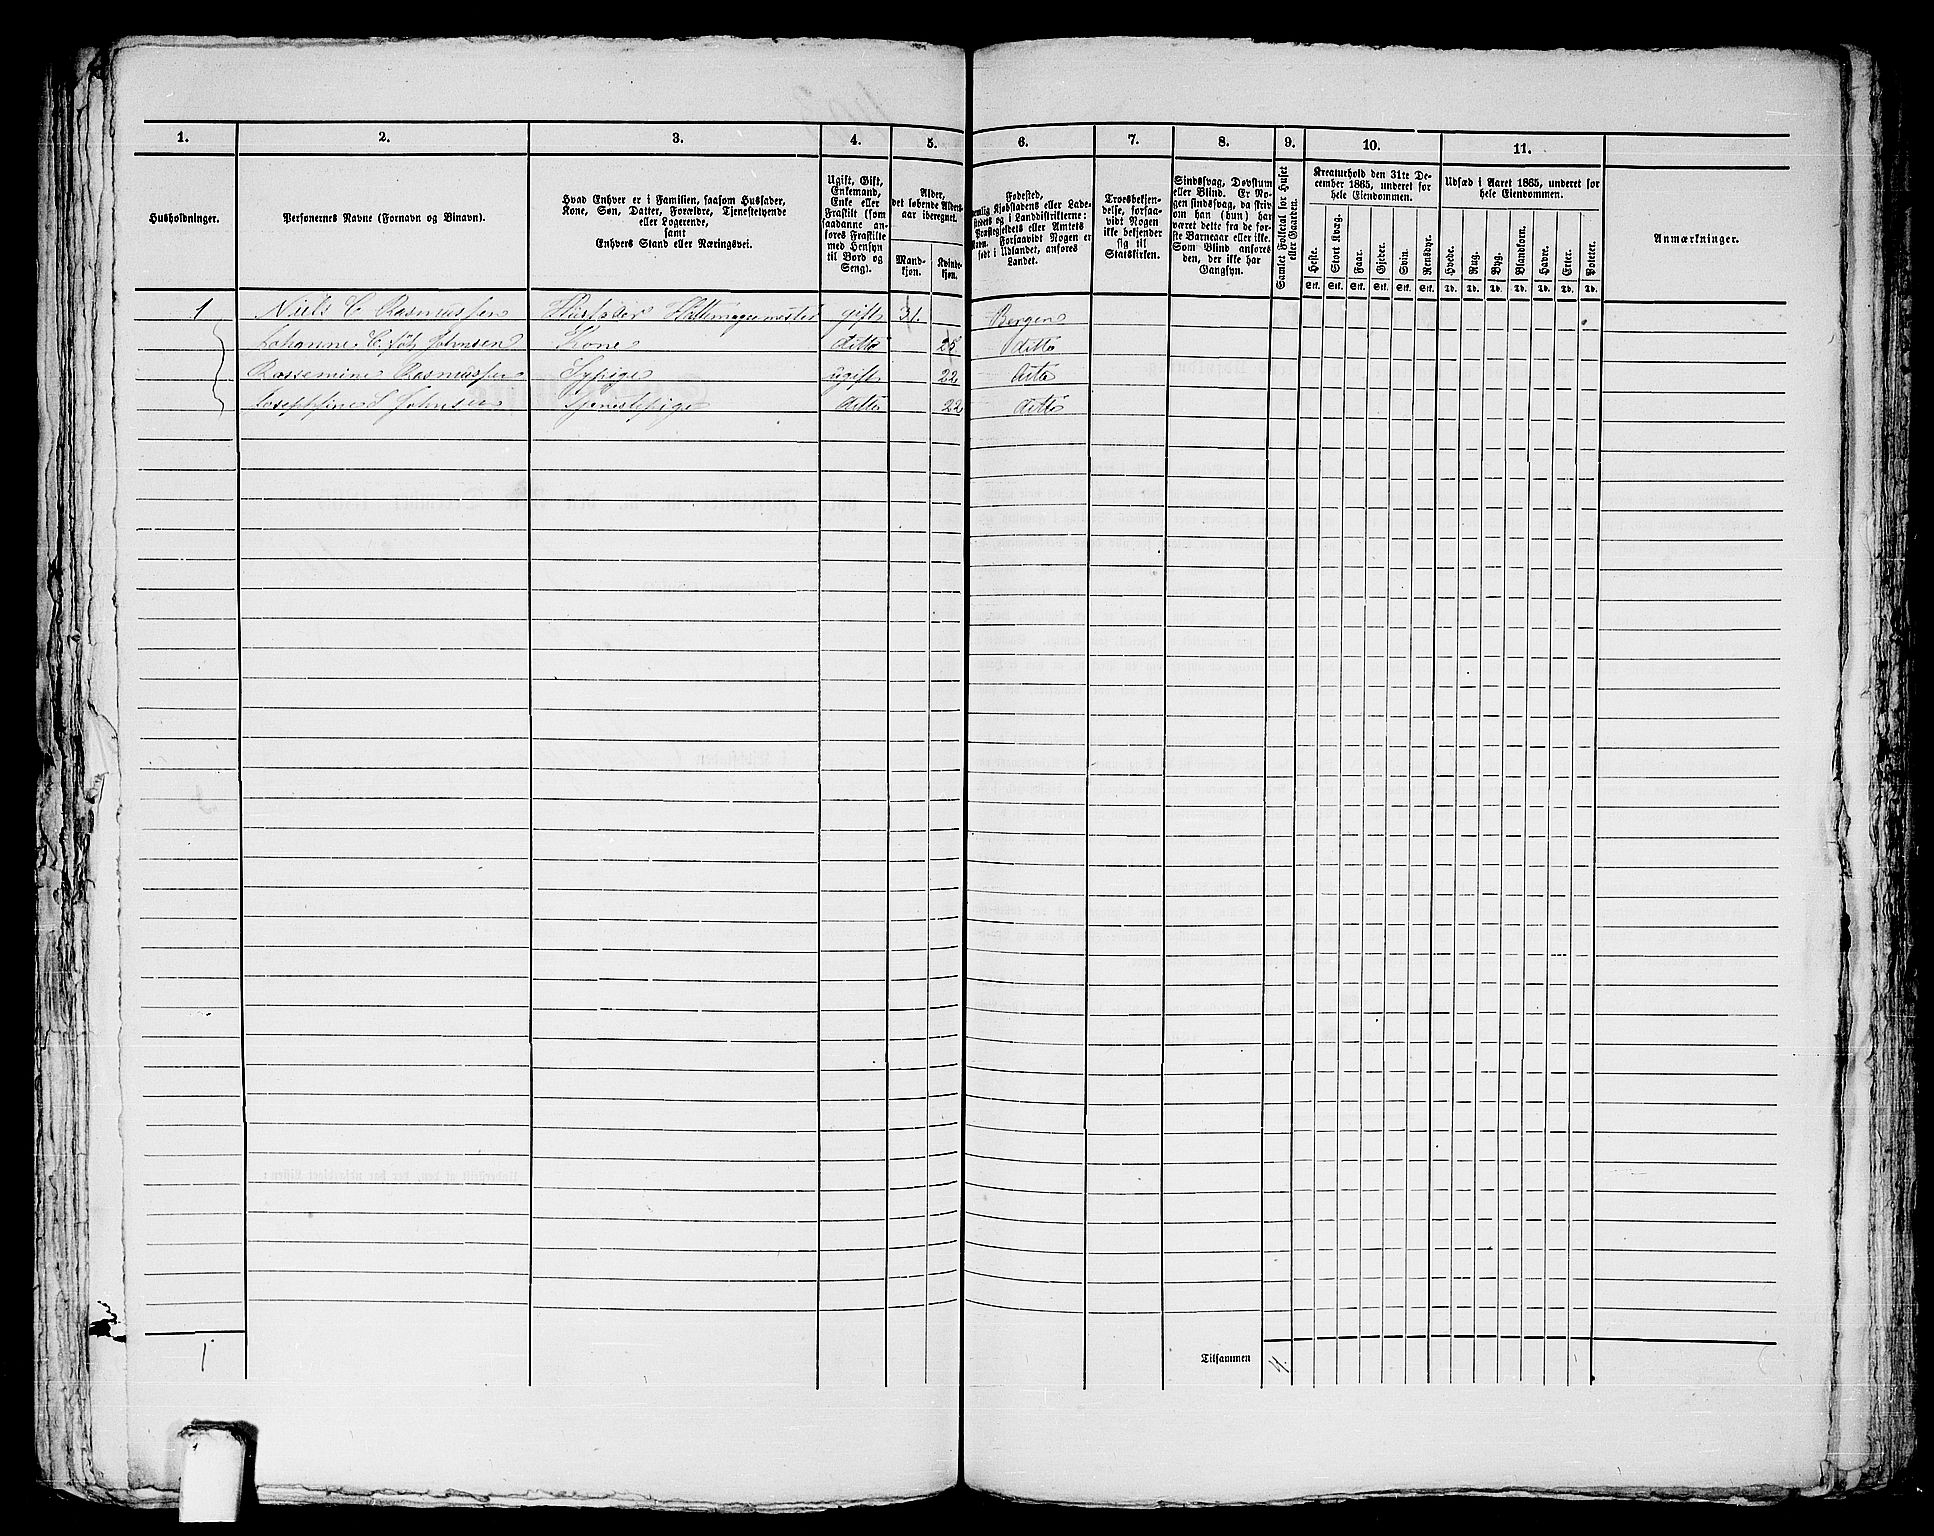 1. 2. 3. 4. 5. 6. 7. 8. 9. 10. 11.
Husholdninger.
Personernes Navne (Fornavn og Binavn).
Hvad Enhver er i Familien, saasom Husfader,
Kone, Søn, Datter, Forældre, Tjenestetyende
eller Logerende,
samt
Enhvers Stand eller Næringsvei.
Ugift, Gift,
Enkemand,
Enke eller
Fraskilt (som
saadanne an-
føres Fraskilte
med Hensyn
til Bord og
Seng).
Alder,
det løbende Alders-
aar iberegnet.
Mand-
kjøn.
Kvinde-
kjøn.
Fødested,
nemlig Kjøbstadens eller Lade-
stedets og i Landdistrikterne:
Præstegjeldets eller Amtets
Navn. Forsaavidt Nogen er
født i Udlandet, anføres
Landet.
Troesbekjen-
delse, forsaa-
vidt Nogen
ikke bekjender
sig til
Statskirken.
Sindssvag, Døvstum
eller Blind. Er No-
gen sindssvag, da skriv
om han (hun) har
været dette fra de før-
ste Barneaar eller ikke.
Som Blind anføres
den, der ikke har
Gangsyn.
Samlet Folketal for Huset
eller Gaarden.
Kreaturhold den 31te De-
cember 1865, underet for
hele Eiendommen.
Heste. Stort Kvæg. Faar. Gjeder. Svin. Rensdyr.
Stk. Stk. Stk. Stk. Stk. Stk.
Udsæd i Aaret 1865, underet for
hele Eiendommen.
Hvede. Rug. Byg. Blandkorn. Havre. Erter. Poteter.
Td. Td. Td. Td. Td. Td. Td.
Anmærkninger.
1 Niels C Rasmussen Husfader Hattemagermester gift 31. Bergen
Johanne C. Johnsen Kone ditto 25 ditto
Rassemine Rasmussen Sypige ugift 22 ditto
Josephine S Johnsen Tjenestepige ditto 22 ditto
1
Tilsammen 4.